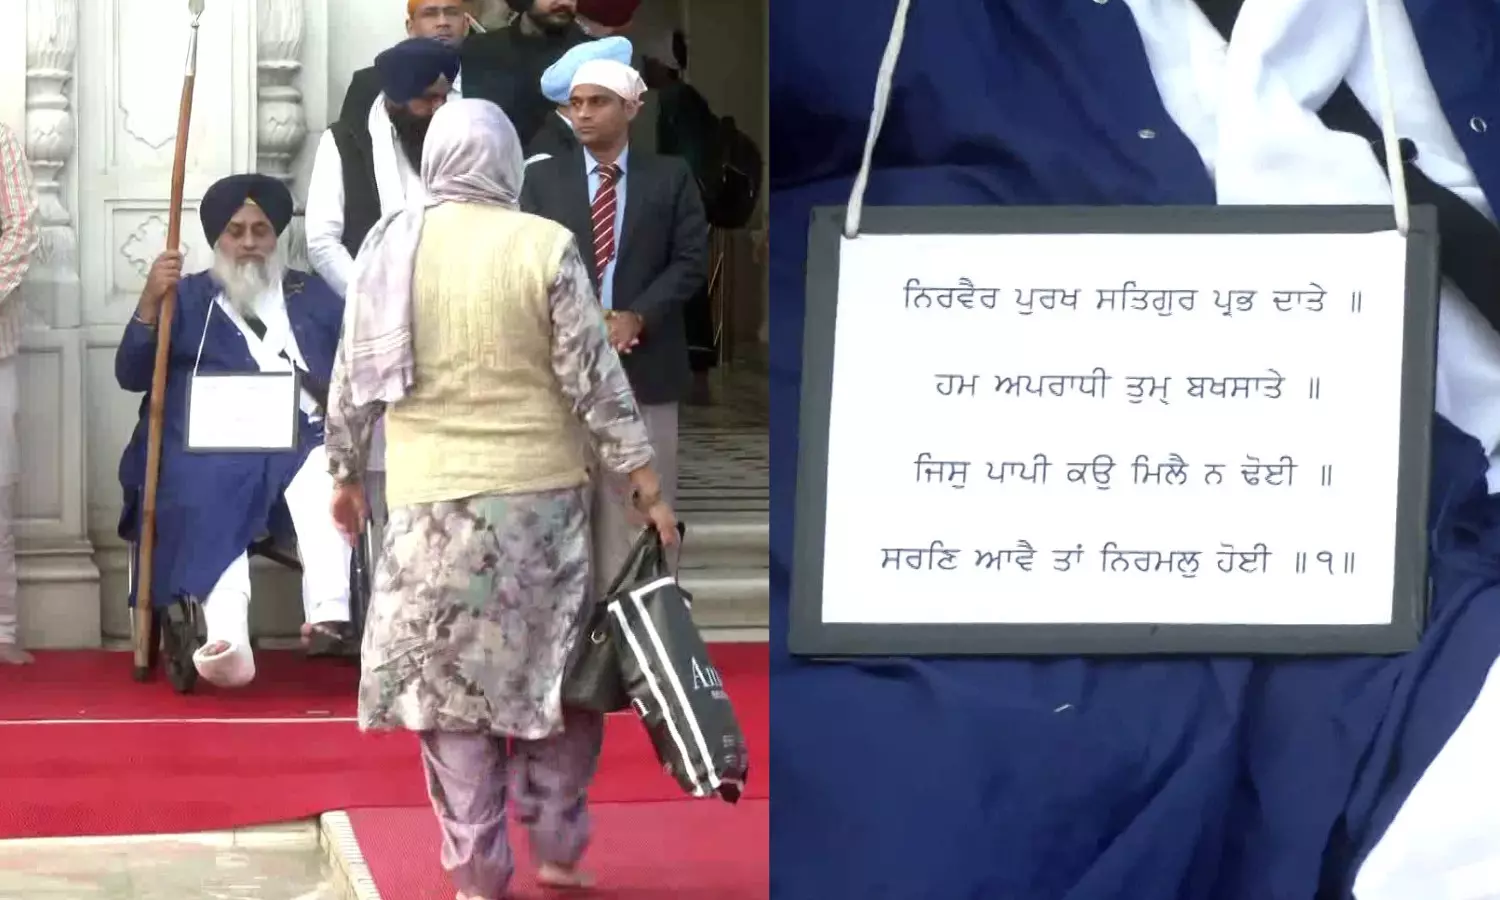 ਨਿਰਵੈਰ ਪੁਰਖ ਸਤਿਗੁਰ ਪ੍ਰਭ ਦਾਤੇ ॥
ਹਮ ਅਪਰਾਧੀ ਤੁਮੑ ਬਖਸਾਤੇ ॥
ਜਿਸੁ ਪਾਪੀ ਕਉ ਮਿਲੈ ਨ ਢੋਈ ॥
ਸਰਣਿ ਆਵੈ ਤਾਂ ਨਿਰਮਲੁ ਹੋਈ ॥੧॥